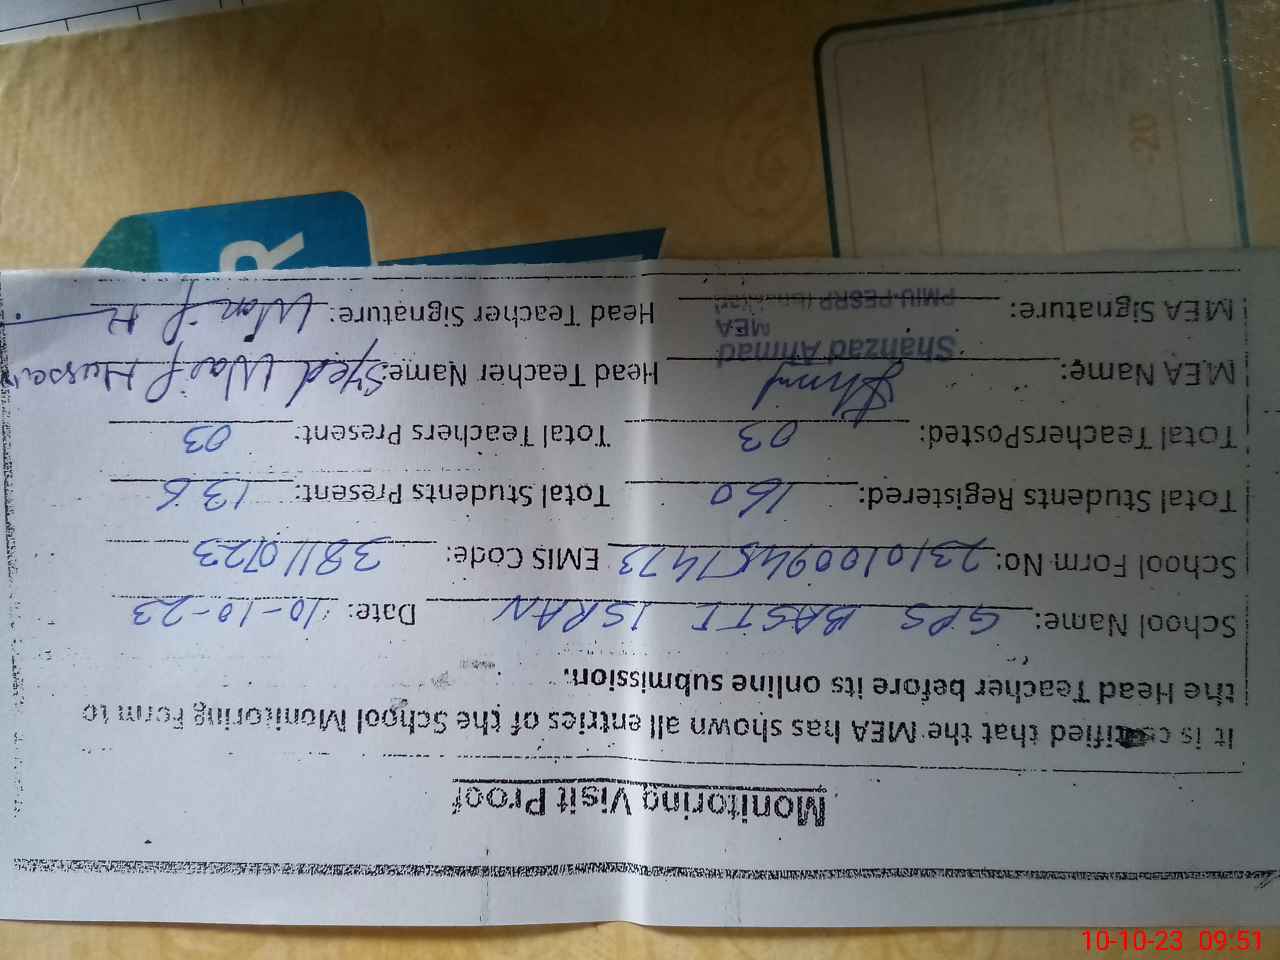 Monitoring Visit Proof
It is certified that the MEA has shown all entries of the School Monitoring Form to
the Head Teacher before its online submission.
School Name: GPS BASTI ISRAN Date: 10-10-23
School Form No: EMIS Code: 38110723
Total Students Registered: 160 Total Students Present: 136
Total TeachersPosted: 03 Total Teachers Present: 03
MEA Name: Shahzad Ahmad Head Teacher Name: Syed
MEA
MEA Signature: PMIU-PESRP Head Teacher Signature:
R
20
10-10-23 09:51